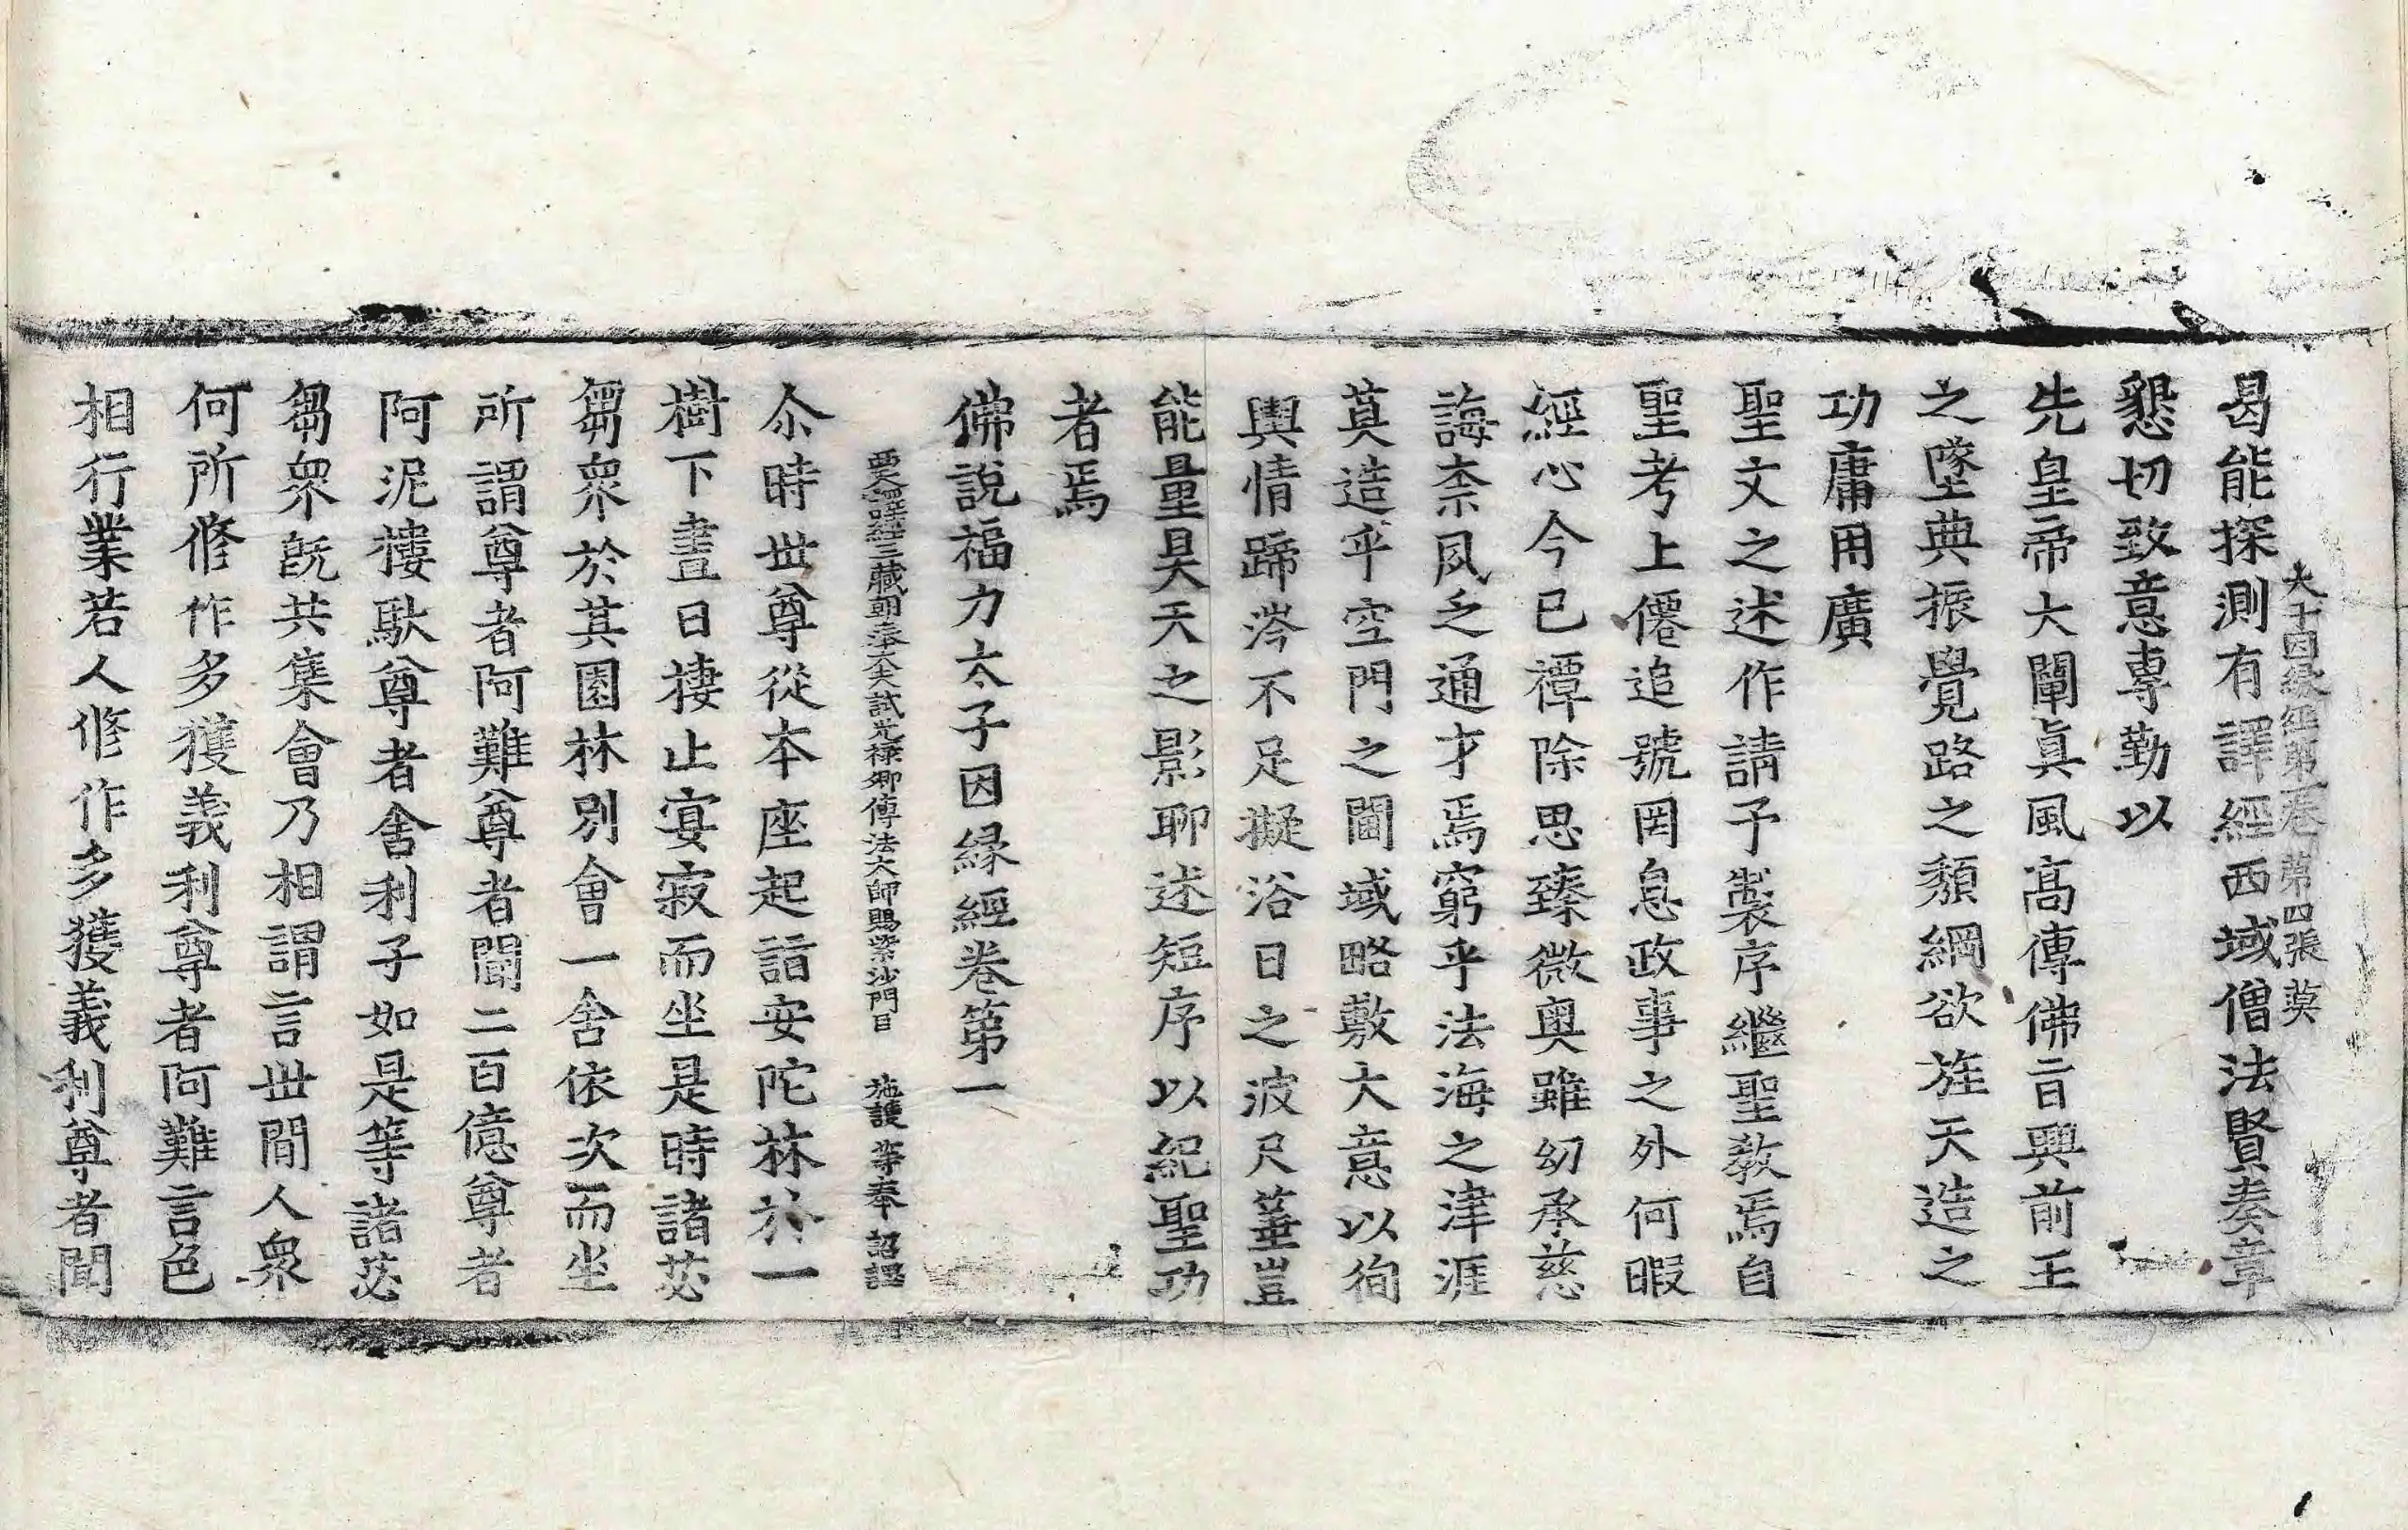 太子因緣經第一卷 第四張 莫
曷能探測有譯經西域僧法賢奏章
懇切致意專勤以
先皇帝大闡眞風高傳佛旨興前王
之墜典振覺路之頹綱欲旌天造之
功庸用廣
聖文之述作請予製序繼聖敎焉自
聖考上僊追號罔息政事之外何暇
經心今已禫除思臻微奧雖幼承慈
誨柰夙乏通才焉窮乎法海之津涯
莫造乎空門之閫域略敷大意以徇
輿情蹄涔不足擬浴日之波尺箠豈
能量昊天之影聊述短序以紀聖功
者焉
佛說福力太子因緣經卷第一
西天譯經三藏朝奉大夫試光祿卿傳法大師賜紫沙門臣 施護 等奉 詔譯
尒時世尊從本座起詣安陀林於一
樹下晝日棲止宴寂而坐是時諸苾
芻衆於其園林別會一舍依次而坐
所謂尊者阿難尊者聞二百億尊者
阿泥樓馱尊者舍利子如是等諸苾
芻衆旣共集會乃相謂言世間人衆
何所修作多獲義利尊者阿難言色
相行業若人修作多獲義利尊者聞